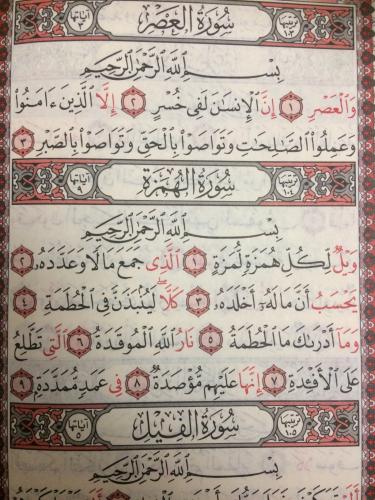 ترتيبها ١٠٣ سُورَةُ العَصْرِ آياتها ٣
بِسْمِ ٱللَّهِ ٱلرَّحْمَٰنِ ٱلرَّحِيمِ
وَٱلْعَصْرِ ١ إِنَّ ٱلْإِنسَٰنَ لَفِى خُسْرٍ ٢ إِلَّا ٱلَّذِينَ ءَامَنُوا۟
وَعَمِلُوا۟ ٱلصَّٰلِحَٰتِ وَتَوَاصَوْا۟ بِٱلْحَقِّ وَتَوَاصَوْا۟ بِٱلصَّبْرِ ٣
ترتيبها ١٠٤ سُورَةُ الهُمَزَةِ آياتها ٩
بِسْمِ ٱللَّهِ ٱلرَّحْمَٰنِ ٱلرَّحِيمِ
وَيْلٌ لِّكُلِّ هُمَزَةٍ لُّمَزَةٍ ١ ٱلَّذِى جَمَعَ مَالًا وَعَدَّدَهُۥ ٢
يَحْسَبُ أَنَّ مَالَهُۥٓ أَخْلَدَهُۥ ٣ كَلَّا ۖ لَيُنۢبَذَنَّ فِى ٱلْحُطَمَةِ ٤
وَمَآ أَدْرَىٰكَ مَا ٱلْحُطَمَةُ ٥ نَارُ ٱللَّهِ ٱلْمُوقَدَةُ ٦ ٱلَّتِى تَطَّلِعُ
عَلَى ٱلْأَفْـِٔدَةِ ٧ إِنَّهَا عَلَيْهِم مُّؤْصَدَةٌ ٨ فِى عَمَدٍ مُّمَدَّدَةٍۭ ٩
ترتيبها ١٠٥ سُورَةُ الفِيلِ آياتها ٥
بِسْمِ ٱللَّهِ ٱلرَّحْمَٰنِ ٱلرَّحِيمِ